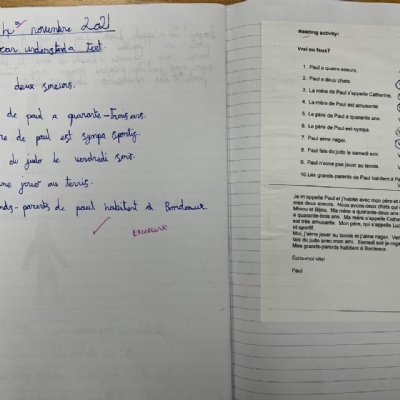 novembre 2021
can understand a text
deux soeurs.
de paul a quarante-trois ans.
re de paul est sympa sportif.
du judo le vendredi soir.
me jouer au tennis.
nds-parents de paul habitent à Bordeaux.
Excellent
Reading activity!
Vrai ou faux?
1. Paul a quatre sœurs.
2. Paul a deux chats.
3. La mère de Paul s'appelle Catherine.
4. La mère de Paul est amusante.
5. Le père de Paul a quarante ans.
6. Le père de Paul est sympa.
7. Paul aime nager.
8. Paul fais du judo le samedi soir.
9. Paul n'aime pas jouer au tennis.
10. Les grands-parents de Paul habitent à P
Je m'appelle Paul et j'habite avec mon père et
mes deux soeurs. Nous avons deux chats qui
Minou et Bijou. Ma mère a quarante-deux ans
a quarante-trois ans. Ma mère s'appelle Cathe
est très amusante. Mon père, qui s'appelle Luc
et sportif.
Moi, j'aime jouer au tennis et j'aime nager. Ven
fais du judo avec mon ami. Samedi soir je rega
Mes grands-parents habitent à Bordeaux.
Écris-moi vite!
Paul